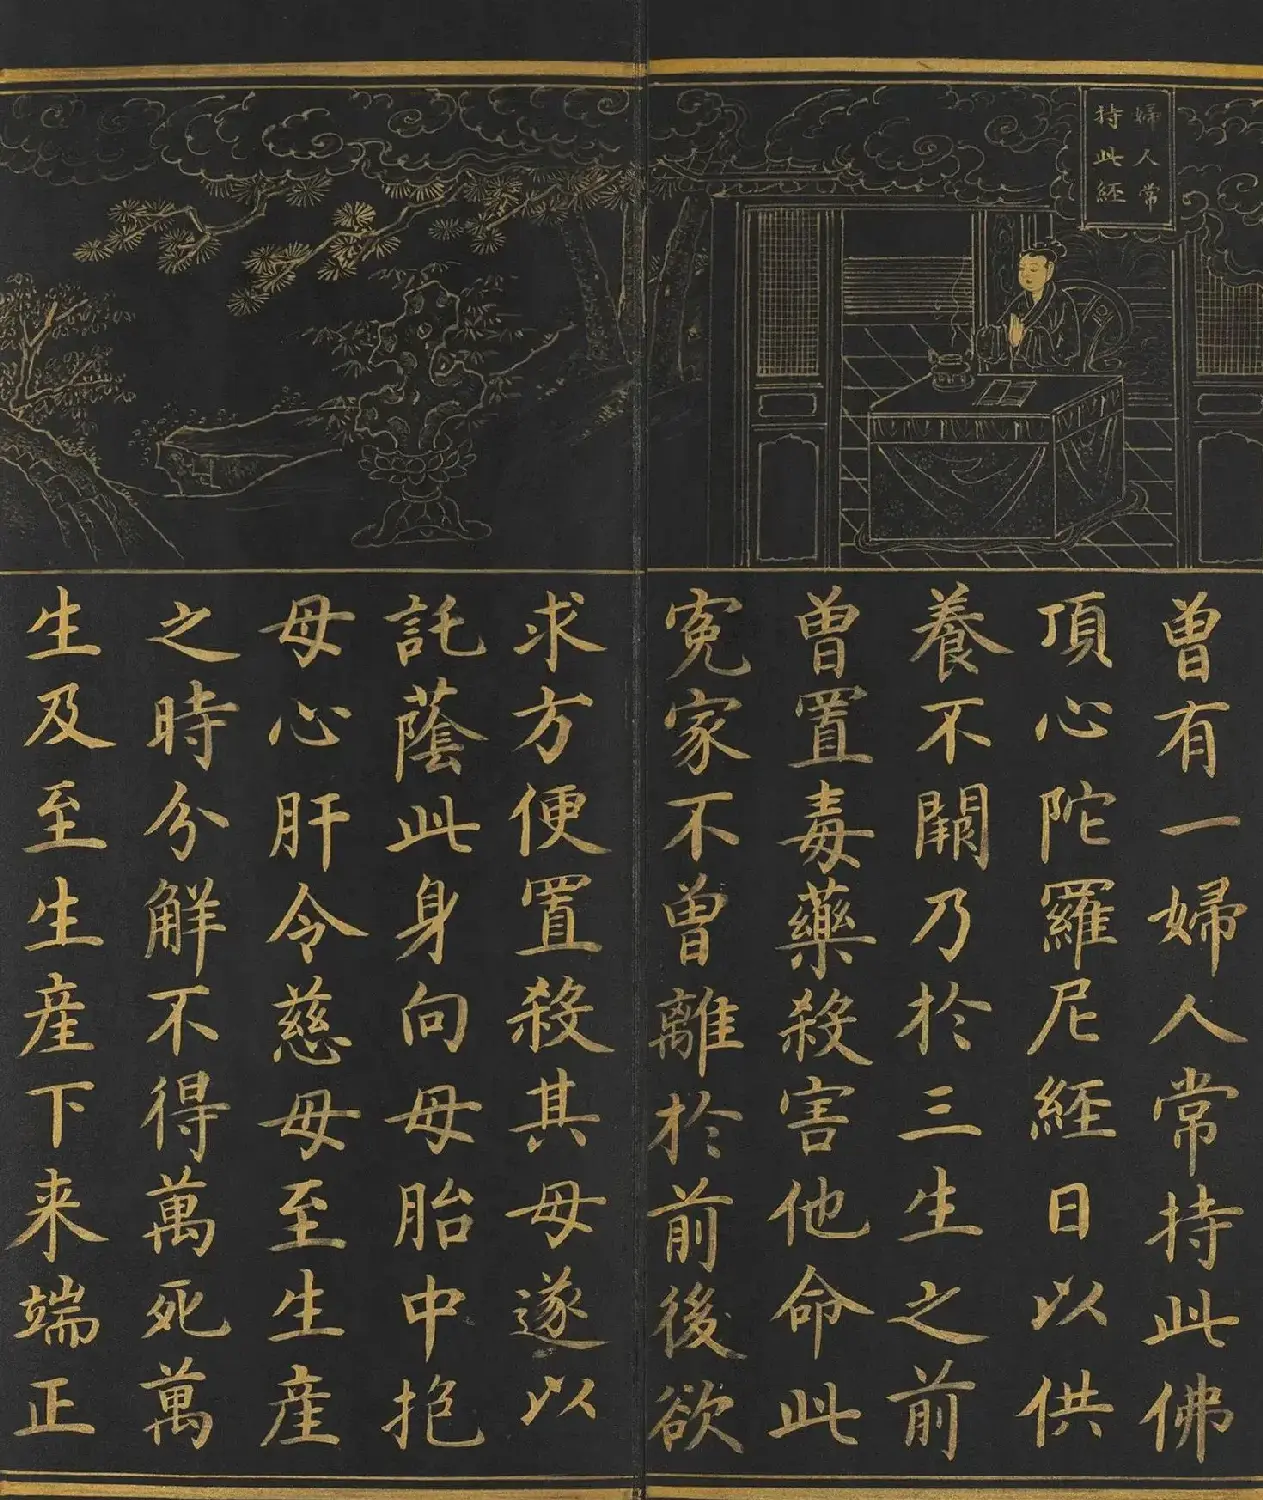 婦人常
持此經
曾有一婦人常持此佛
頂心陀羅尼經日以供
養不闕乃於三生之前
曾置毒藥殺害他命此
寃家不曾離於前後欲
求方便置殺其母遂以
託蔭此身向母胎中抱
母心肝令慈母至生産
之時分解不得萬死萬
生及至生産下来端正